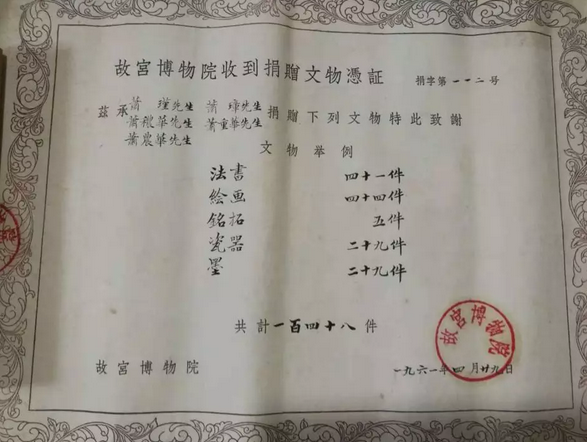 故宮博物院收到捐贈文物憑証
捐字第一一二号
茲承蕭瑾先生 蕭璋先生
蕭穠華先生 蕭重華先生
蕭農華先生
捐贈下列文物特此致謝
文物举例
法書 四十一件
絵画 四十四件
銘拓 五件
瓷器 二十九件
墨 二十九件
共計一百四十八件
故宮博物院
一九六一年四月廿九日
故宮博物院